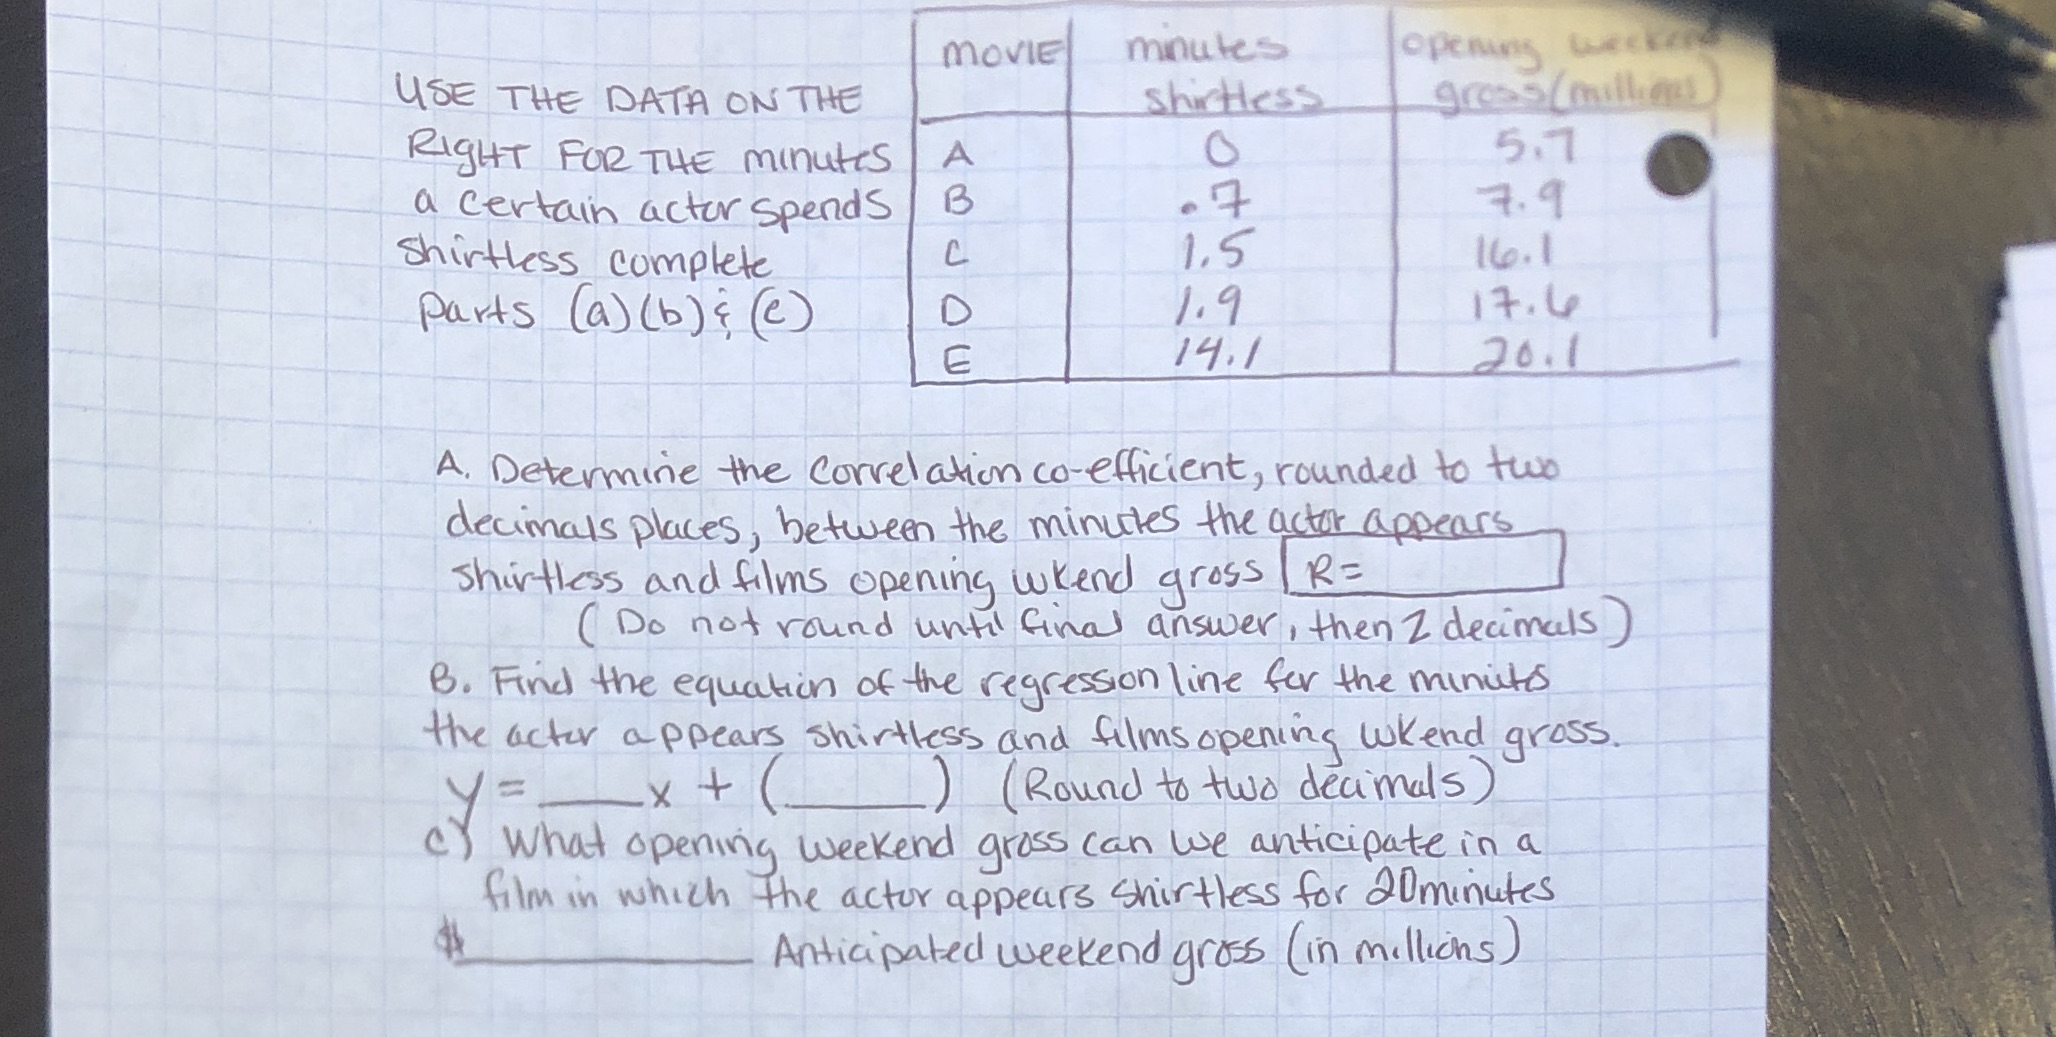 USE THE DATA ON THE
RIGHT FOR THE minutes
a certain actor spends
shirtless complete
parts (a)(b) & (c)
MOVIE minutes shirtless opening weekend gross (millions)
A 0 5.7
B .7 7.9
C 1.5 16.1
D 1.9 17.6
E 14.1 20.1
A. Determine the correlation co-efficient, rounded to two
decimals places, between the minutes the actor appears
shirtless and films opening wkend gross R=
(Do not round until final answer, then 2 decimals)
B. Find the equation of the regression line for the minuts
the actor appears shirtless and films opening wkend gross.
y = ___x + (____) (Round to two decimals)
c) What opening weekend gross can we anticipate in a
film in which the actor appears shirtless for 20minutes
$________ Anticipated weekend gross (in millions)